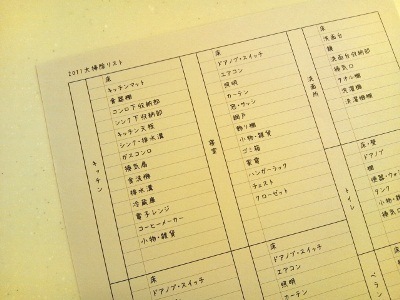 2011大掃除リスト
キッチン
床
キッチンマット
食器棚
コンロ下収納部
シンク下収納部
キッチン天板
シンク・排水溝
ガスコンロ
換気扇
食洗機
排水溝
冷蔵庫
電子レンジ
コーヒーメーカー
小物・雑貨
寝室
床
ドアノブ・スイッチ
エアコン
照明
カーテン
窓・サッシ
網戸
飾り棚
小物・雑貨
ゴミ箱
家電
ハンガーラック
チェスト
クローゼット
洗面所
床
洗面台
鏡
洗面台収納部
換気口
タオル棚
洗濯機
洗濯機棚
トイレ
床・壁
ドアノブ
棚
タンク
小物・
換気
床
ドアノブ・スイッチ
エアコン
照明
床
ドアノブ・スイッチ
エアコン
照明
カーテン
ベラン
床